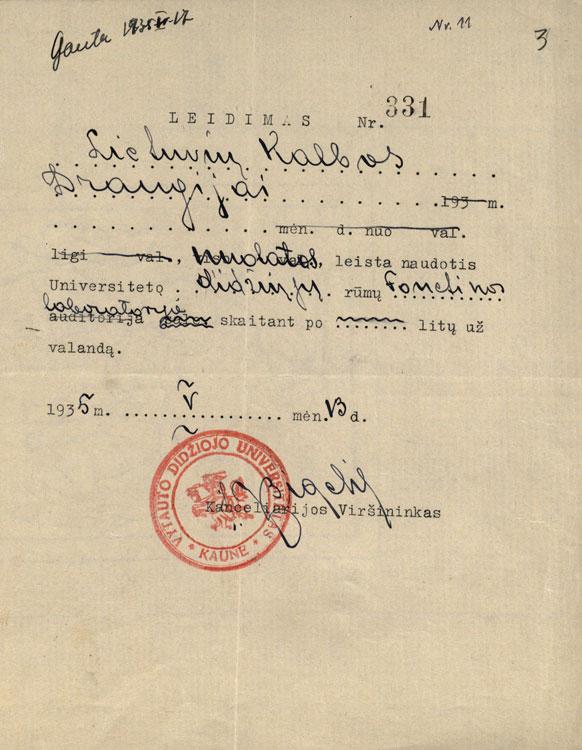 Gauta 1935 IV-17
Nr. 11
3
LEIDIMAS Nr. 331
Lietuvių Kalbos
Draugijai 193 m.
mėn. d. nuo val.
ligi val., nuolatos, leista naudotis
Universiteto didžiųjų rūmų Fonetinos
laboratorija
auditorija skaitant po litų už
valandą.
1935 m. V mėn. 13 d.
Kanceliarijos Viršininkas
VYTAUTO DIDŽIOJO UNIVERSITETAS
* KAUNE *